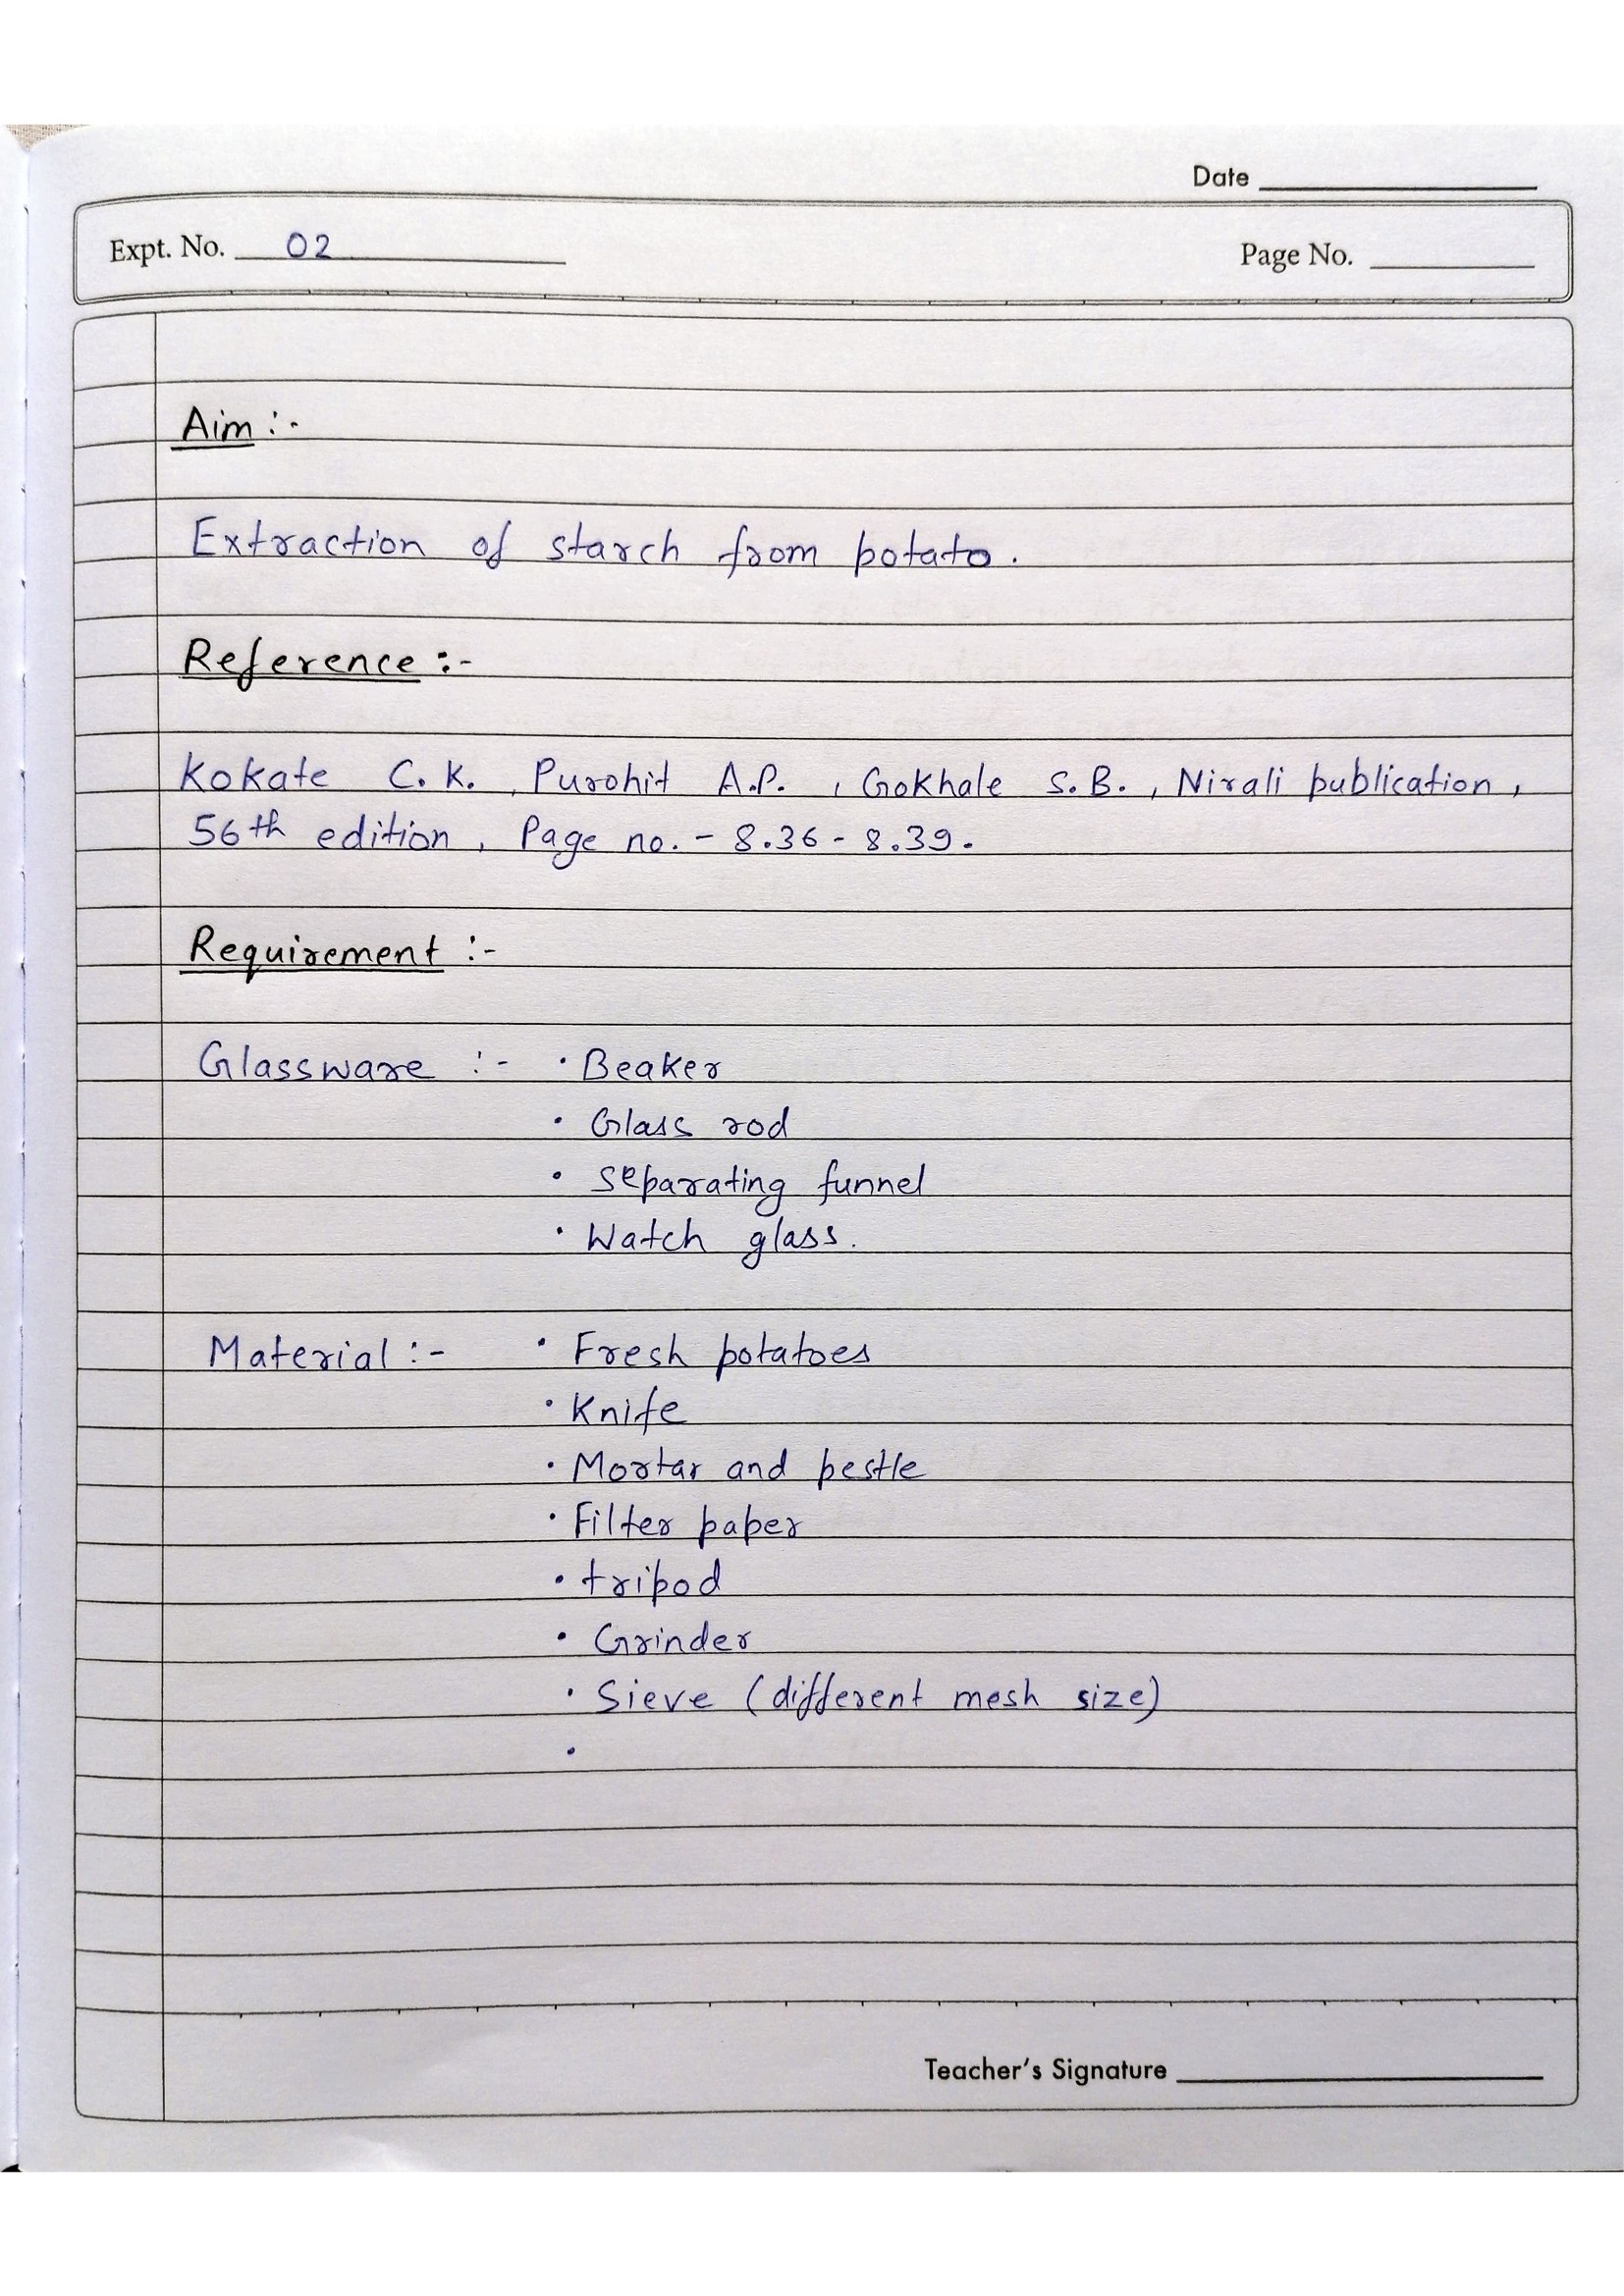 Date
Expt. No. 02
Page No.
Aim :-
Extraction of starch from potato.
Reference :-
Kokate C. K. , Purohit A.P. , Gokhale S. B. , Nirali publication ,
56th edition , Page no. - 8.36 - 8.39.
Requirement :-
Glassware :- • Beaker
• Glass rod
• Separating funnel
• Watch glass.
Material :- • Fresh potatoes
• Knife
• Mortar and pestle
• Filter paper
• tripod
• Grinder
• Sieve (different mesh size)
•
Teacher's Signature